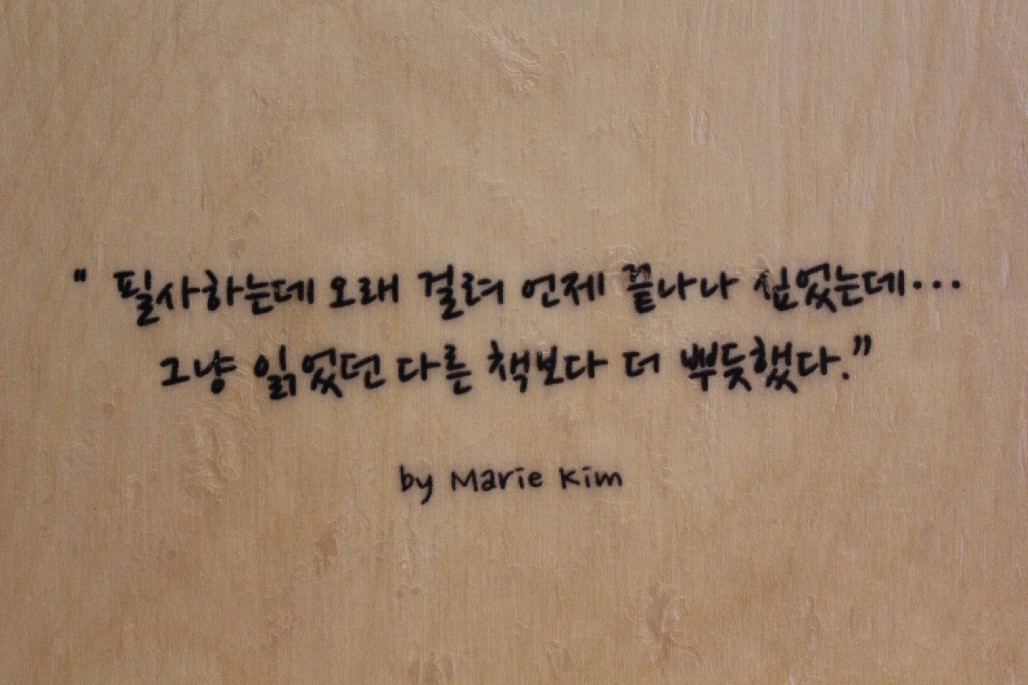 “ 필사하는데 오래 걸려 언제 끝나나 싶었는데...
그냥 읽었던 다른 책보다 더 뿌듯했다.”
by Marie Kim